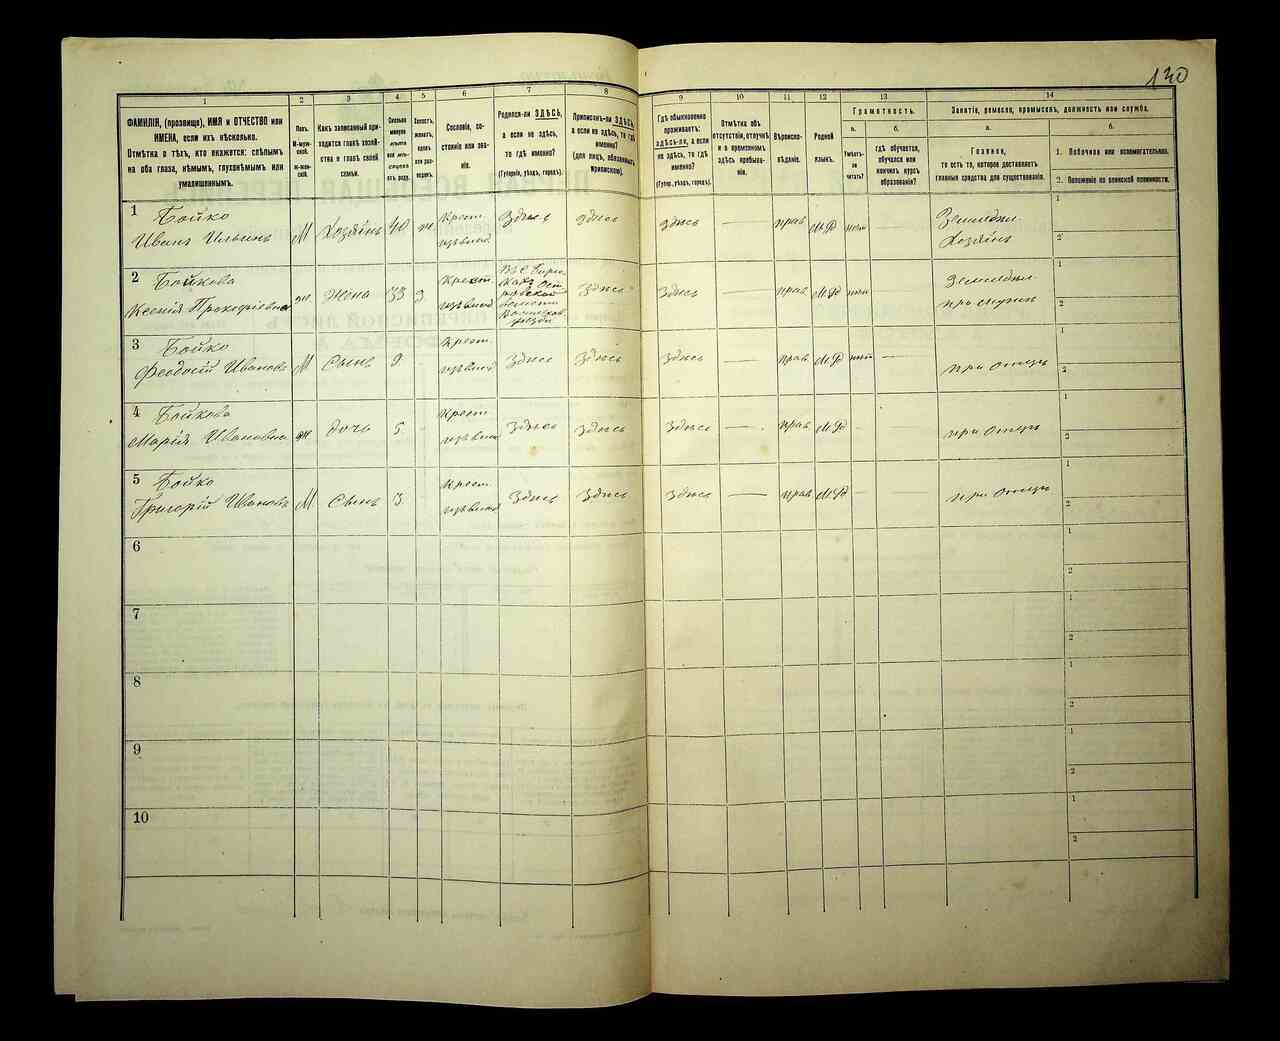 130
1 2 3 4 5 6 7 8 9 10 11 12 13 14
ФАМИЛІЯ, (прозвище), ИМЯ и ОТЧЕСТВО или
ИМЕНА, если ихъ нѣсколько.
Отмѣтка о тѣхъ, кто окажется: слѣпымъ
на оба глаза, нѣмымъ, глухонѣмымъ или
умалишеннымъ.
Полъ.
М-муж-
ской.
Ж-жен-
скій.
Какъ записанный при-
ходится главѣ хозяй-
ства и главѣ своей
семьи.
Сколько
минуло
лѣтъ
или мѣ-
сяцевъ
отъ роду.
Холостъ,
женатъ,
вдовъ
или раз-
веденъ.
Сословіе, со-
стояніе или зва-
ніе.
Родился-ли ЗДѢСЬ,
а если не здѣсь,
то гдѣ именно?
(Губернія, уѣздъ, городъ).
Приписанъ-ли ЗДѢСЬ,
а если не здѣсь, то гдѣ
именно?
(для лицъ, обязанныхъ
припиской).
Гдѣ обыкновенно
проживаетъ:
здѣсь-ли, а если
не здѣсь, то гдѣ
именно?
(Губер., уѣздъ, городъ).
Отмѣтка объ
отсутствіи, отлучкѣ
и о временномъ
здѣсь пребыва-
ніи.
Вѣроиспо-
вѣданіе.
Родной
языкъ.
Грамотность.
а. б.
Умѣетъ-
ли
читать?
гдѣ обучается,
обучался или
кончилъ курсъ
образованія?
Занятіе, ремесло, промыселъ, должность или служба.
а. б.
Главное,
то есть то, которое доставляетъ
главныя средства для существованія.
1. Побочное или вспомогательное.
2. Положеніе по воинской повинности.
1 Бойко
Иванъ Ильинъ М Хозяинъ 40 ж Крест. Здѣсь здѣсь здѣсь — прав М.Р нет — Земледѣл. Хозяинъ
1
2
2 Бойкова
Ксенія Прокофіевна ж Жена 33 Крест. Здѣсь Здѣсь — прав М.Р нет Земледѣл.
1
2
3 Бойко
Феодосій Ивановъ М Сынъ 9 - Крест. Здѣсь Здѣсь Здѣсь — прав М.Р нет — при Отцѣ
1
2
4 Бойкова
Марія Ивановна ж дочь 5 - Крест. Здѣсь Здѣсь Здѣсь — прав М.Р при Отцѣ
1
2
5 Бойко
Григорій Ивановъ М Сынъ 3 - Крест. Здѣсь Здѣсь Здѣсь — прав М.Р при Отцѣ
1
2
6
1
2
7
1
2
8
1
2
9
1
2
10
1
2